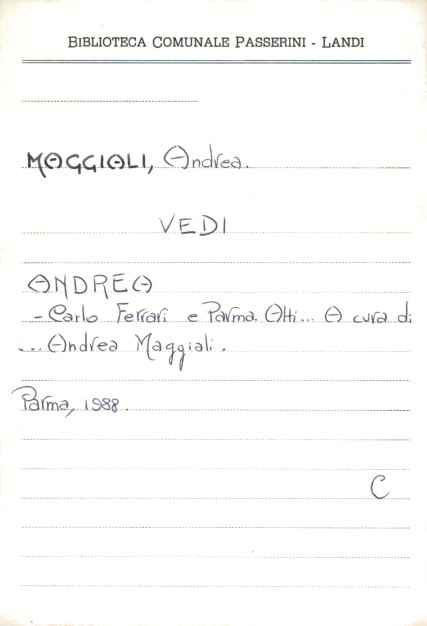 BIBLIOTECA COMUNALE PASSERINI - LANDI
MAGGIALI, Andrea.
VEDI
ANDREA
- Carlo Ferrari e Parma. Atti... A cura di
... Andrea Maggiali.
Parma, 1988.
C